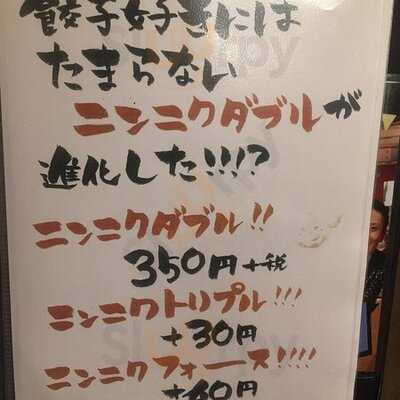 餃子好きには
たまらない
ニンニクダブルが
進化した!!!?
ニンニクダブル!!
350円+税
ニンニクトリプル!!!
+30円
ニンニクフォース!!!!
+60円